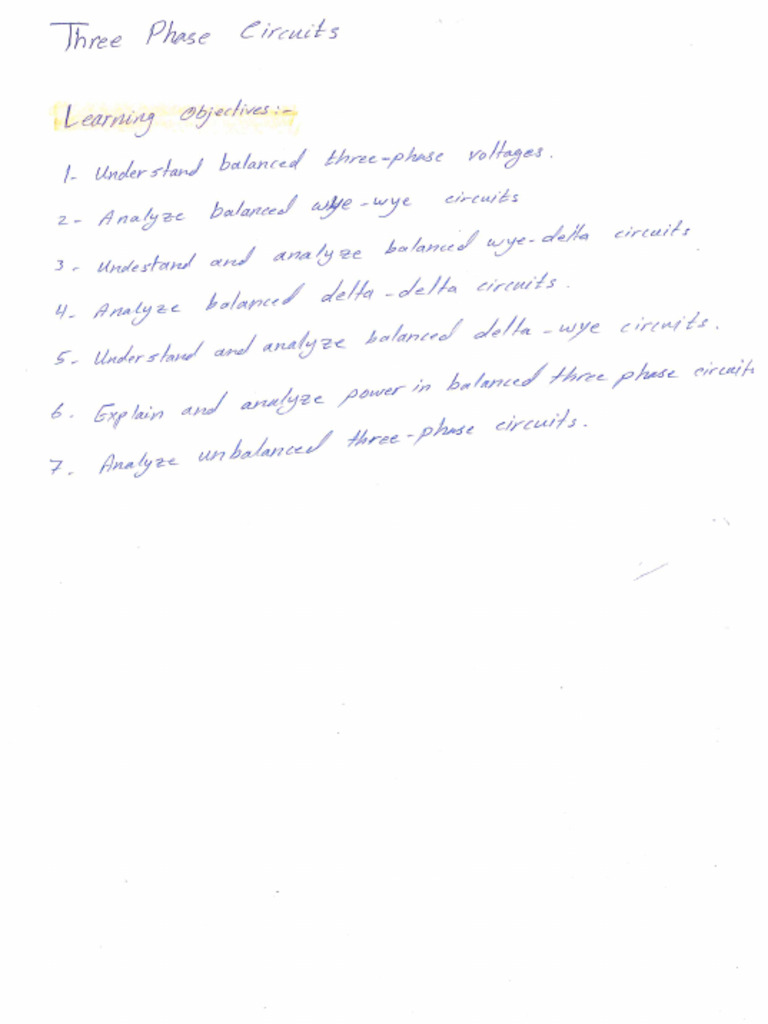 Three Phase Circuits
Learning Objectives:-
1- Understand balanced three-phase voltages.
2- Analyze balanced wye-wye circuits
3- Undestand and analyze balanced wye-delta circuits
4- Analyze balanced delta-delta circuits.
5- Understand and analyze balanced delta-wye circuits.
6. Explain and analyze power in balanced three phase circuits
7. Analyze unbalanced three-phase circuits.